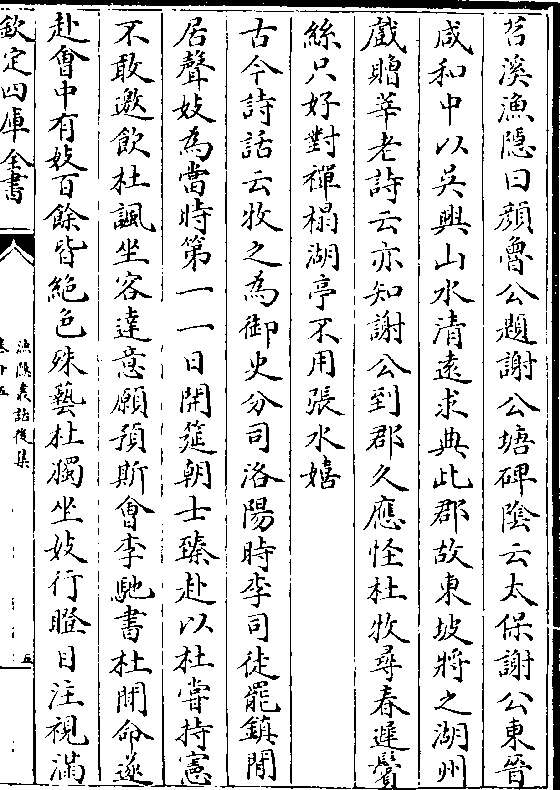 苕溪漁隱曰顔魯公題謝公塘碑隂云太保謝公東晉
咸和中以吳興山水清逺求典此郡故東坡將之湖州
戲贈莘老詩云亦知謝公到郡久應怪杜牧尋春遲鬢
絲只好對禪榻湖亭不用張水嬉
古今詩話云牧之為御史分司洛陽時李司徒罷鎮閒
居聲妓為當時第一一日開筵朝士臻赴以杜嘗持憲
不敢邀飲杜諷坐客達意願預斯會李馳書杜聞命遂
赴會中有妓百餘皆絶色殊藝杜獨坐妓行瞪目注視滿
欽定四庫全書
漁隱叢話後集
卷十五
五